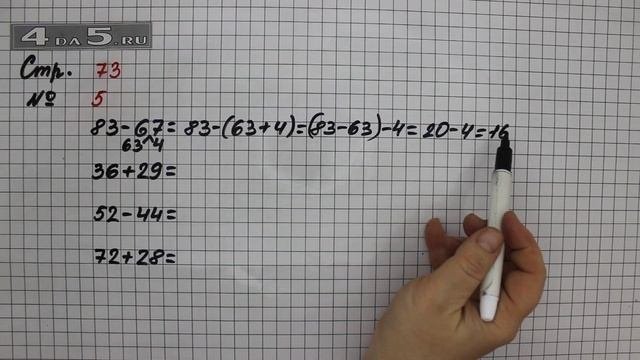 4 ДА 5.RU
Стр. 73
№ 5
83-67= 83-(63+4)=(83-63)-4= 20-4=16
63 4
36+29=
52-44=
72+28=